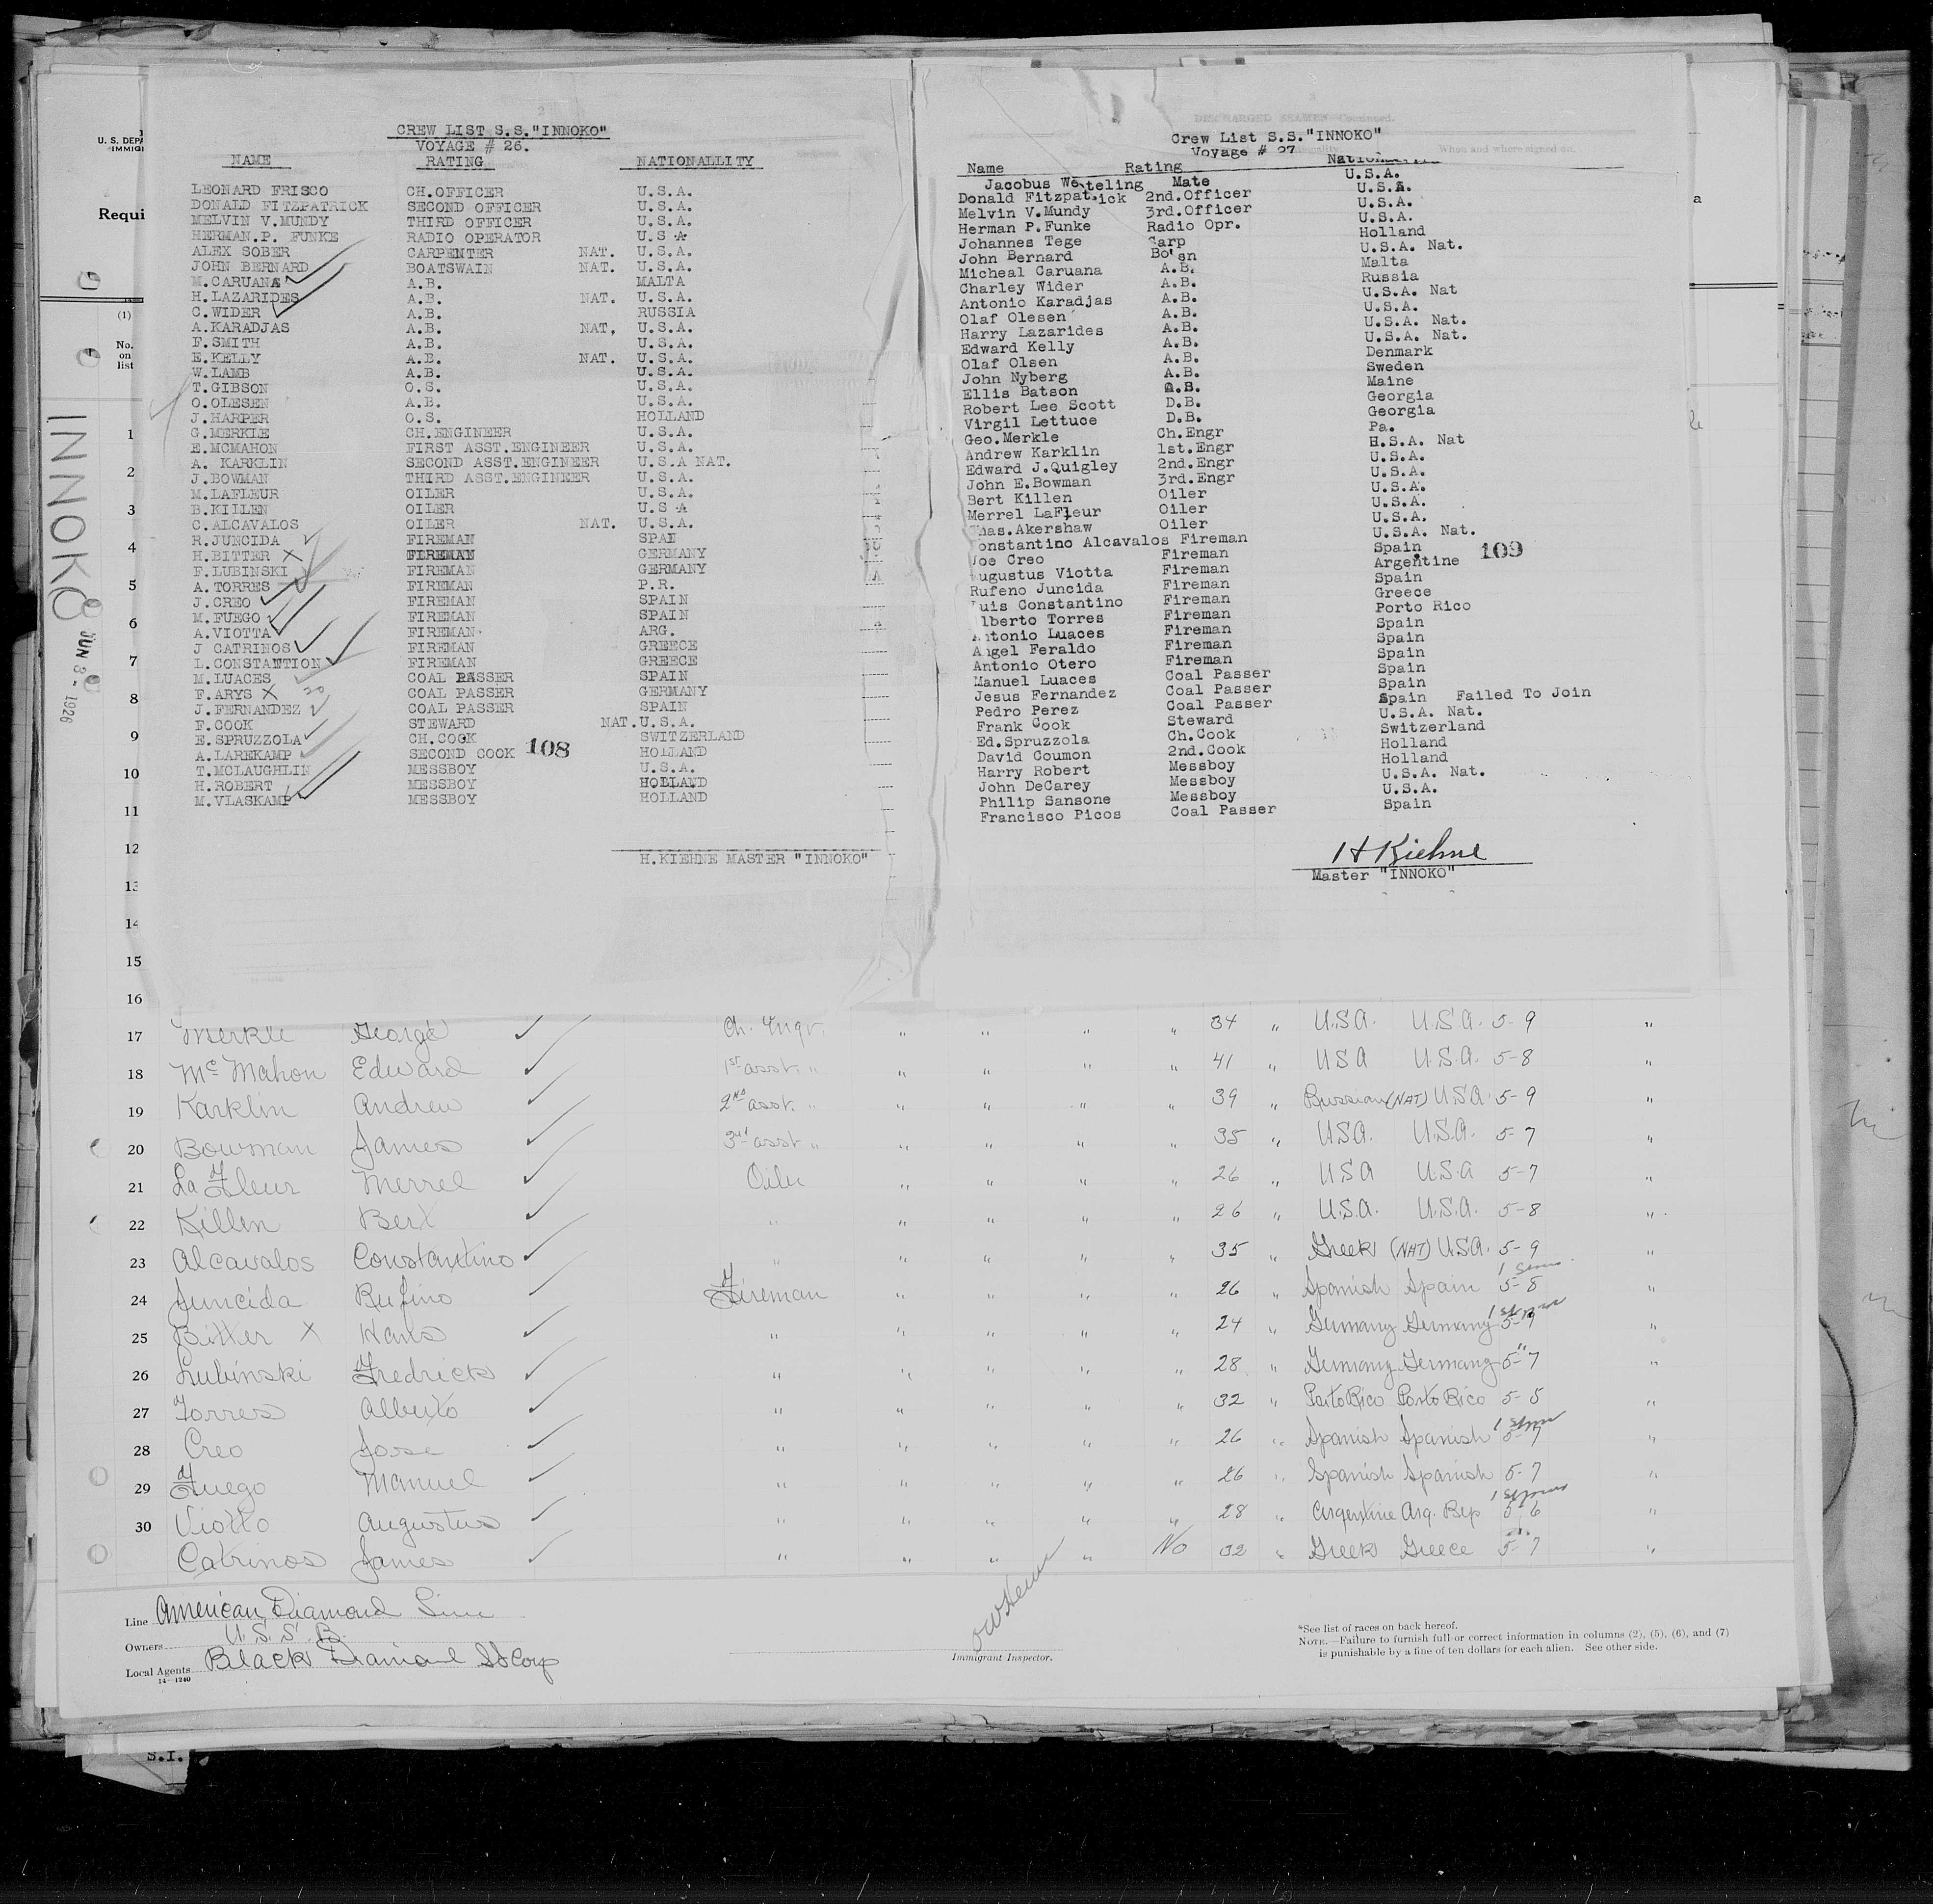 U. S. DEPA
IMMIGI
Requi
(1)
No.
on
list
INNOKO
JUN 8 - 1926
CREW LIST S.S."INNOKO"
VOYAGE # 26.
NAME RATING NATIONALLITY
LEONARD FRISCO CH.OFFICER U.S.A.
DONALD FITZPATRICK SECOND OFFICER U.S.A.
MELVIN V.MUNDY THIRD OFFICER U.S.A.
HERMAN.P. FUNKE RADIO OPERATOR U.S A
ALEX SOBER CARPENTER NAT. U.S.A.
JOHN BERNARD BOATSWAIN NAT. U.S.A.
M.CARUANA A.B. MALTA
H.LAZARIDES A.B. NAT. U.S.A.
C.WIDER A.B. RUSSIA
A.KARADJAS A.B. NAT, U.S.A.
F.SMITH A.B. U.S.A.
E.KELLY A.B. NAT. U.S.A.
W.LAMB A.B. U.S.A.
T.GIBSON O.S. U.S.A.
O.OLESEN A.B. U.S.A.
J.HARPER O.S. HOLLAND
G.MERKLE CH.ENGINEER U.S.A.
E.MCMAHON FIRST ASST.ENGINEER U.S.A.
A. KARKLIN SECOND ASST.ENGINEER U.S.A NAT.
J.BOWMAN THIRD ASST.ENGINEER U.S.A.
M.LAFLEUR OILER U.S.A.
B.KILLEN OILER U.S A
C.ALCAVALOS OILER NAT. U.S.A.
R.JUNCIDA FIREMAN SPAI
H.BITTER X FIREMAN GERMANY
F.LUBINSKI FIREMAN GERMANY
A.TORRES FIREMAN P.R.
J.CREO FIREMAN SPAIN
M.FUEGO FIREMAN SPAIN
A.VIOTTA FIREMAN ARG.
J CATRINOS FIREMAN GREECE
L.CONSTANTION FIREMAN GREECE
M.LUACES COAL PASSER SPAIN
F.ARYS X COAL PASSER GERMANY
J.FERNANDEZ COAL PASSER SPAIN
F.COOK STEWARD NAT.U.S.A.
E.SPRUZZOLA CH.COOK SWITZERLAND
A.LAREKAMP SECOND COOK 108 HOLLAND
T.MCLAUGHLIN MESSBOY U.S.A.
H.ROBERT MESSBOY HOLLAND
M.VLASKAMP MESSBOY HOLLAND
H.KIEHNE MASTER "INNOKO"
DISCHARGED SEAMEN—Continued.
Crew List S.S."INNOKO"
Voyage # 27
When and where signed on.
Name Rating
Jacobus Mate U.S.A.
Donald 2nd.Officer U.S.A.
Melvin V.Mundy 3rd.Officer U.S.A.
Herman P.Funke Radio Opr. U.S.A.
Johannes Tege Carp Holland
John Bernard Bo'sn U.S.A. Nat.
Micheal Caruana A.B. Malta
Charley Wider A.B. Russia
Antonio Karadjas A.B. U.S.A. Nat
Olaf Olesen A.B. U.S.A.
Harry Lazarides A.B. U.S.A. Nat.
Edward Kelly A.B. U.S.A. Nat.
Olaf Olsen A.B. Denmark
John Nyberg A.B. Sweden
Ellis Batson Maine
Robert Lee Scott D.B. Georgia
Virgil Lettuce D.B. Georgia
Geo.Merkle Ch.Engr Pa.
Andrew Karklin 1st.Engr U.S.A. Nat
Edward J.Quigley 2nd.Engr U.S.A.
John E.Bowman 3rd.Engr U.S.A.
Bert Killen Oiler U.S.A.
Merrel LaFleur Oiler U.S.A.
has.Akershaw Oiler U.S.A.
onstantino Alcavalos Fireman U.S.A. Nat.
Joe Creo Fireman Spain 109
ugustus Viotta Fireman Argentine
Rufeno Juncida Fireman Spain
uis Constantino Fireman Greece
lberto Torres Fireman Porto Rico
Antonio Luaces Fireman Spain
Angel Feraldo Fireman Spain
Antonio Otero Fireman Spain
Manuel Luaces Coal Passer Spain
Jesus Fernandez Coal Passer Spain
Pedro Perez Coal Passer Spain Failed To Join
Frank Cook Steward U.S.A. Nat.
Ed.Spruzzola Ch.Cook Switzerland
David Coumon 2nd.Cook Holland
Harry Robert Messboy Holland
John DeCarey Messboy U.S.A. Nat.
Philip Sansone Messboy U.S.A.
Francisco Picos Coal Passer Spain
H Kiehne
Master "INNOKO"
1
2
3
4
5
6
7
8
9
10
11
12
13
14
15
16
17 Merkle George Ch. Engr. " " " " 34 " U.S.A. U.S.A. 5-9 "
18 Mc Mahon Edward 1st asst. " " " " " 41 " USA U.S.A. 5-8 "
19 Karklin Andrew 2nd asst. " " " " " 39 " Russian (NAT) U.S.A. 5-9 "
20 Bowman James 3rd asst " " " " " 35 " USA. U.S.A. 5-7 "
21 La Fleur Merrel Oiler " " " " 26 " USA U.S.A 5-7 "
22 Killen Bert " " " " " 26 " U.S.A. U.S.A. 5-8 "
23 Alcavalos Constantino " " " " " 35 " Greek (NAT) U.S.A. 5-9 "
24 Juncida Rufino Fireman " " " " 26 " Spanish Spain 5-8 "
25 Bitter X Hans " " " " " 24 " Germany Germany 5-9 "
26 Lubinski Fredrick " " " " " 28 " Germany Germany 5-7 "
27 Torres Alberto " " " " " 32 " Porto Rico Porto Rico 5-5 "
28 Creo Jose " " " " " 26 " Spanish Spanish 5-7 "
29 Fuego Manuel " " " " " 26 " Spanish Spanish 5-7 "
30 Viotto Augustus " " " " " 28 " Argentine Arg. Rep 5-6 "
Catrinos James " " " " No 32 " Greek Greece 5-7 "
Line American Diamond Line
Owners U.S.S.B.
Local Agents Black Diamond SS Corp
14—1240
Immigrant Inspector.
*See list of races on back hereof.
NOTE.—Failure to furnish full or correct information in columns (2), (5), (6), and (7)
is punishable by a fine of ten dollars for each alien. See other side.
S.I.